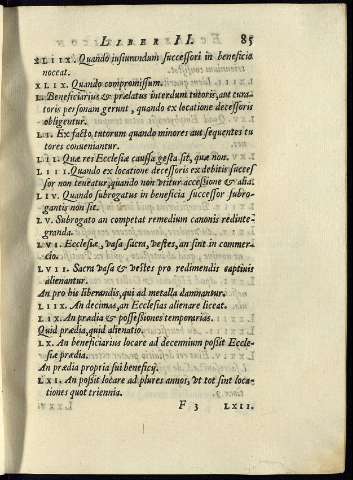 LIBER II. 85
XLIIX. Quando iusiurandum successori in beneficio
noceat.
XLIX. Quando compromissum.
L. Beneficiarius & prælatus interdum tutoris, aut cura-
toris personam gerunt, quando ex locatione decessoris
obligentur.
LI. Ex facto, tutorum quando minores aut sequentes tu
tores conueniantur.
LII. Quæ rei Ecclesiæ caussa gesta sit, quæ non.
LIII. Quando ex locatione decessoris ex debitis succes
sor non teneatur, quando non vtitur accessione & alia.
LIV. Quando subrogatus in beneficia successor subro-
gantis non sit.
LV. Subrogato an competat remedium canonis redinte-
granda.
LVI. Ecclesiæ, vasa sacra, vestes, an sint in commer-
cio.
LVII. Sacra vasa & vestes pro redimendis captiuis
alienantur.
An pro bis liberandis, qui ad metalla damnantur.
LIIX. An decimas, an Ecclesias alienare liceat.
LIX. An prædia & possessiones temporarias.
Quid prædia, quid alienatio.
LX. An beneficiarius locare ad decennium possit Eccle-
siæ prædia.
An prædia propria sui beneficij.
LXI. An possit locare ad plures annos, vt tot sint loca-
tiones quot triennia.
F 3 LXII.